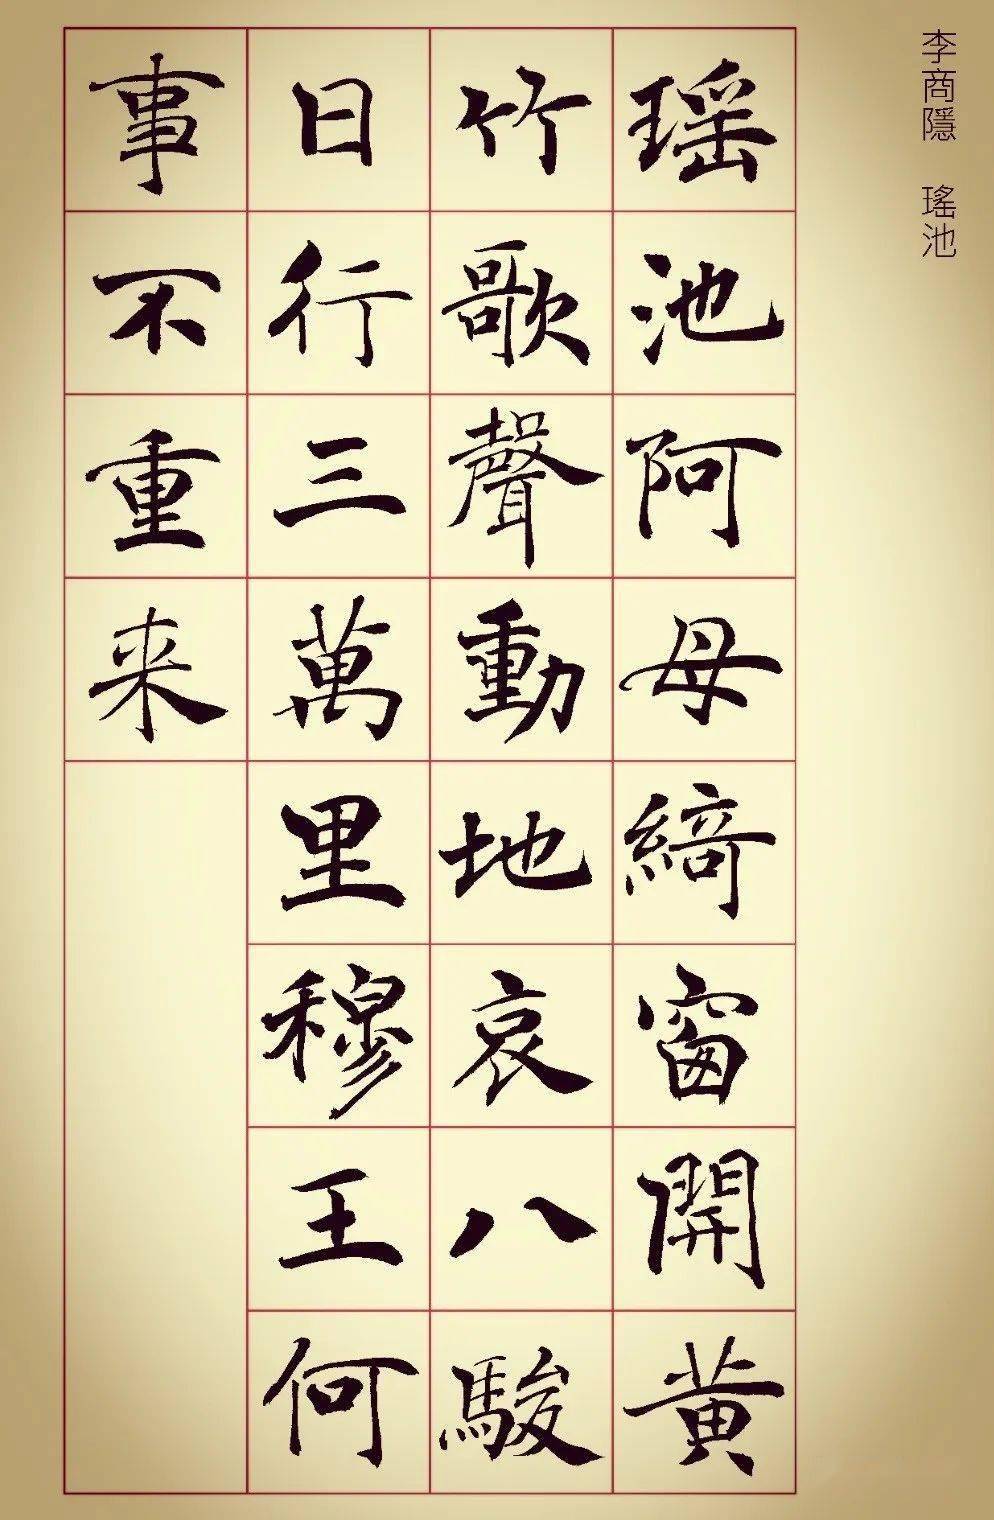 李商隱 瑤池
瑶池阿母綺窗開黄
竹歌聲動地哀八駿
日行三萬里穆王何
事不重来